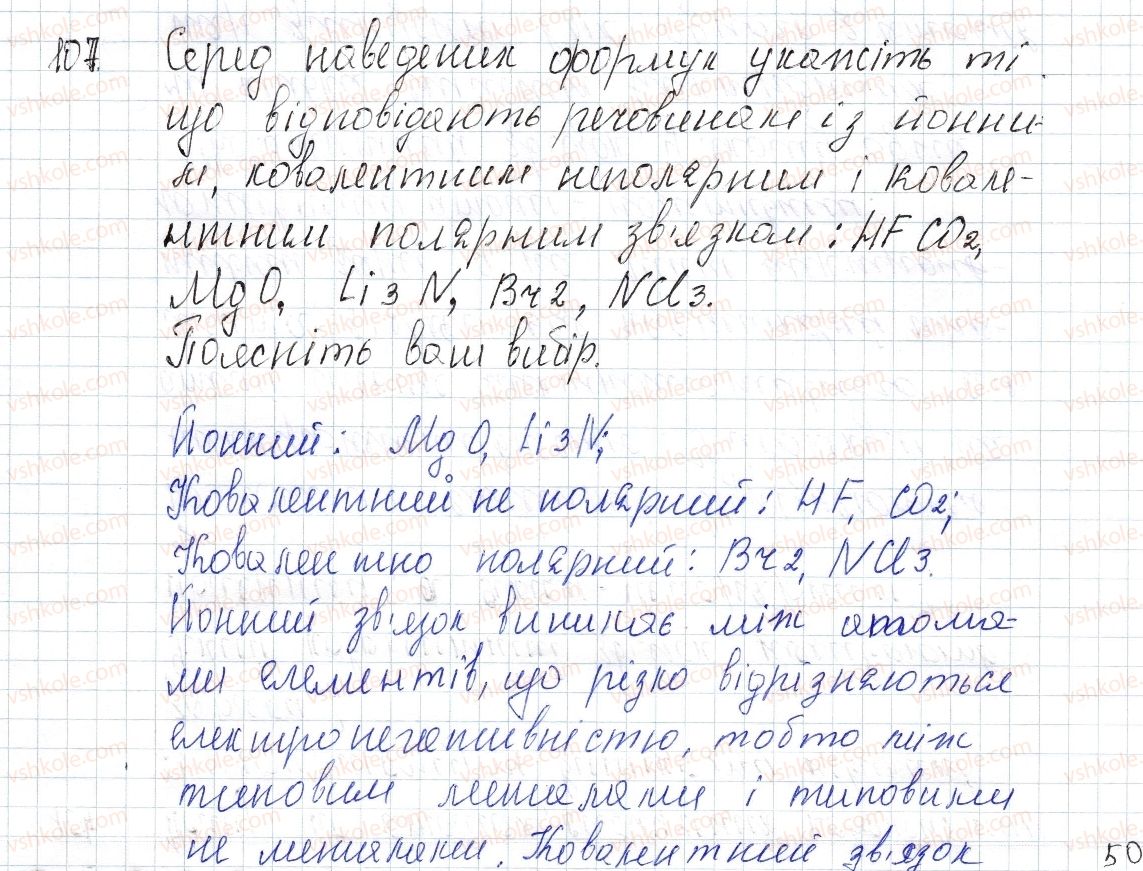 107. Серед наведених формул укажіть ті,
що відповідають речовинам із йонни-
м, ковалентним неполярним і ковале-
нтним полярним зв'язком: HF CO2,
MgO, Li3N, Br2, NCl3.
Поясніть ваш вибір.
Йонний: MgO, Li3N;
Ковалентний не полярний: HF, CO2;
Ковалентно полярний: Br2, NCl3.
Йонний зв'язок виникає між атома-
ми елементів, що різко відрізняються
електронегативністю, тобто між
типовим металами і типовими
не металами. Ковалентний зв'язок
50